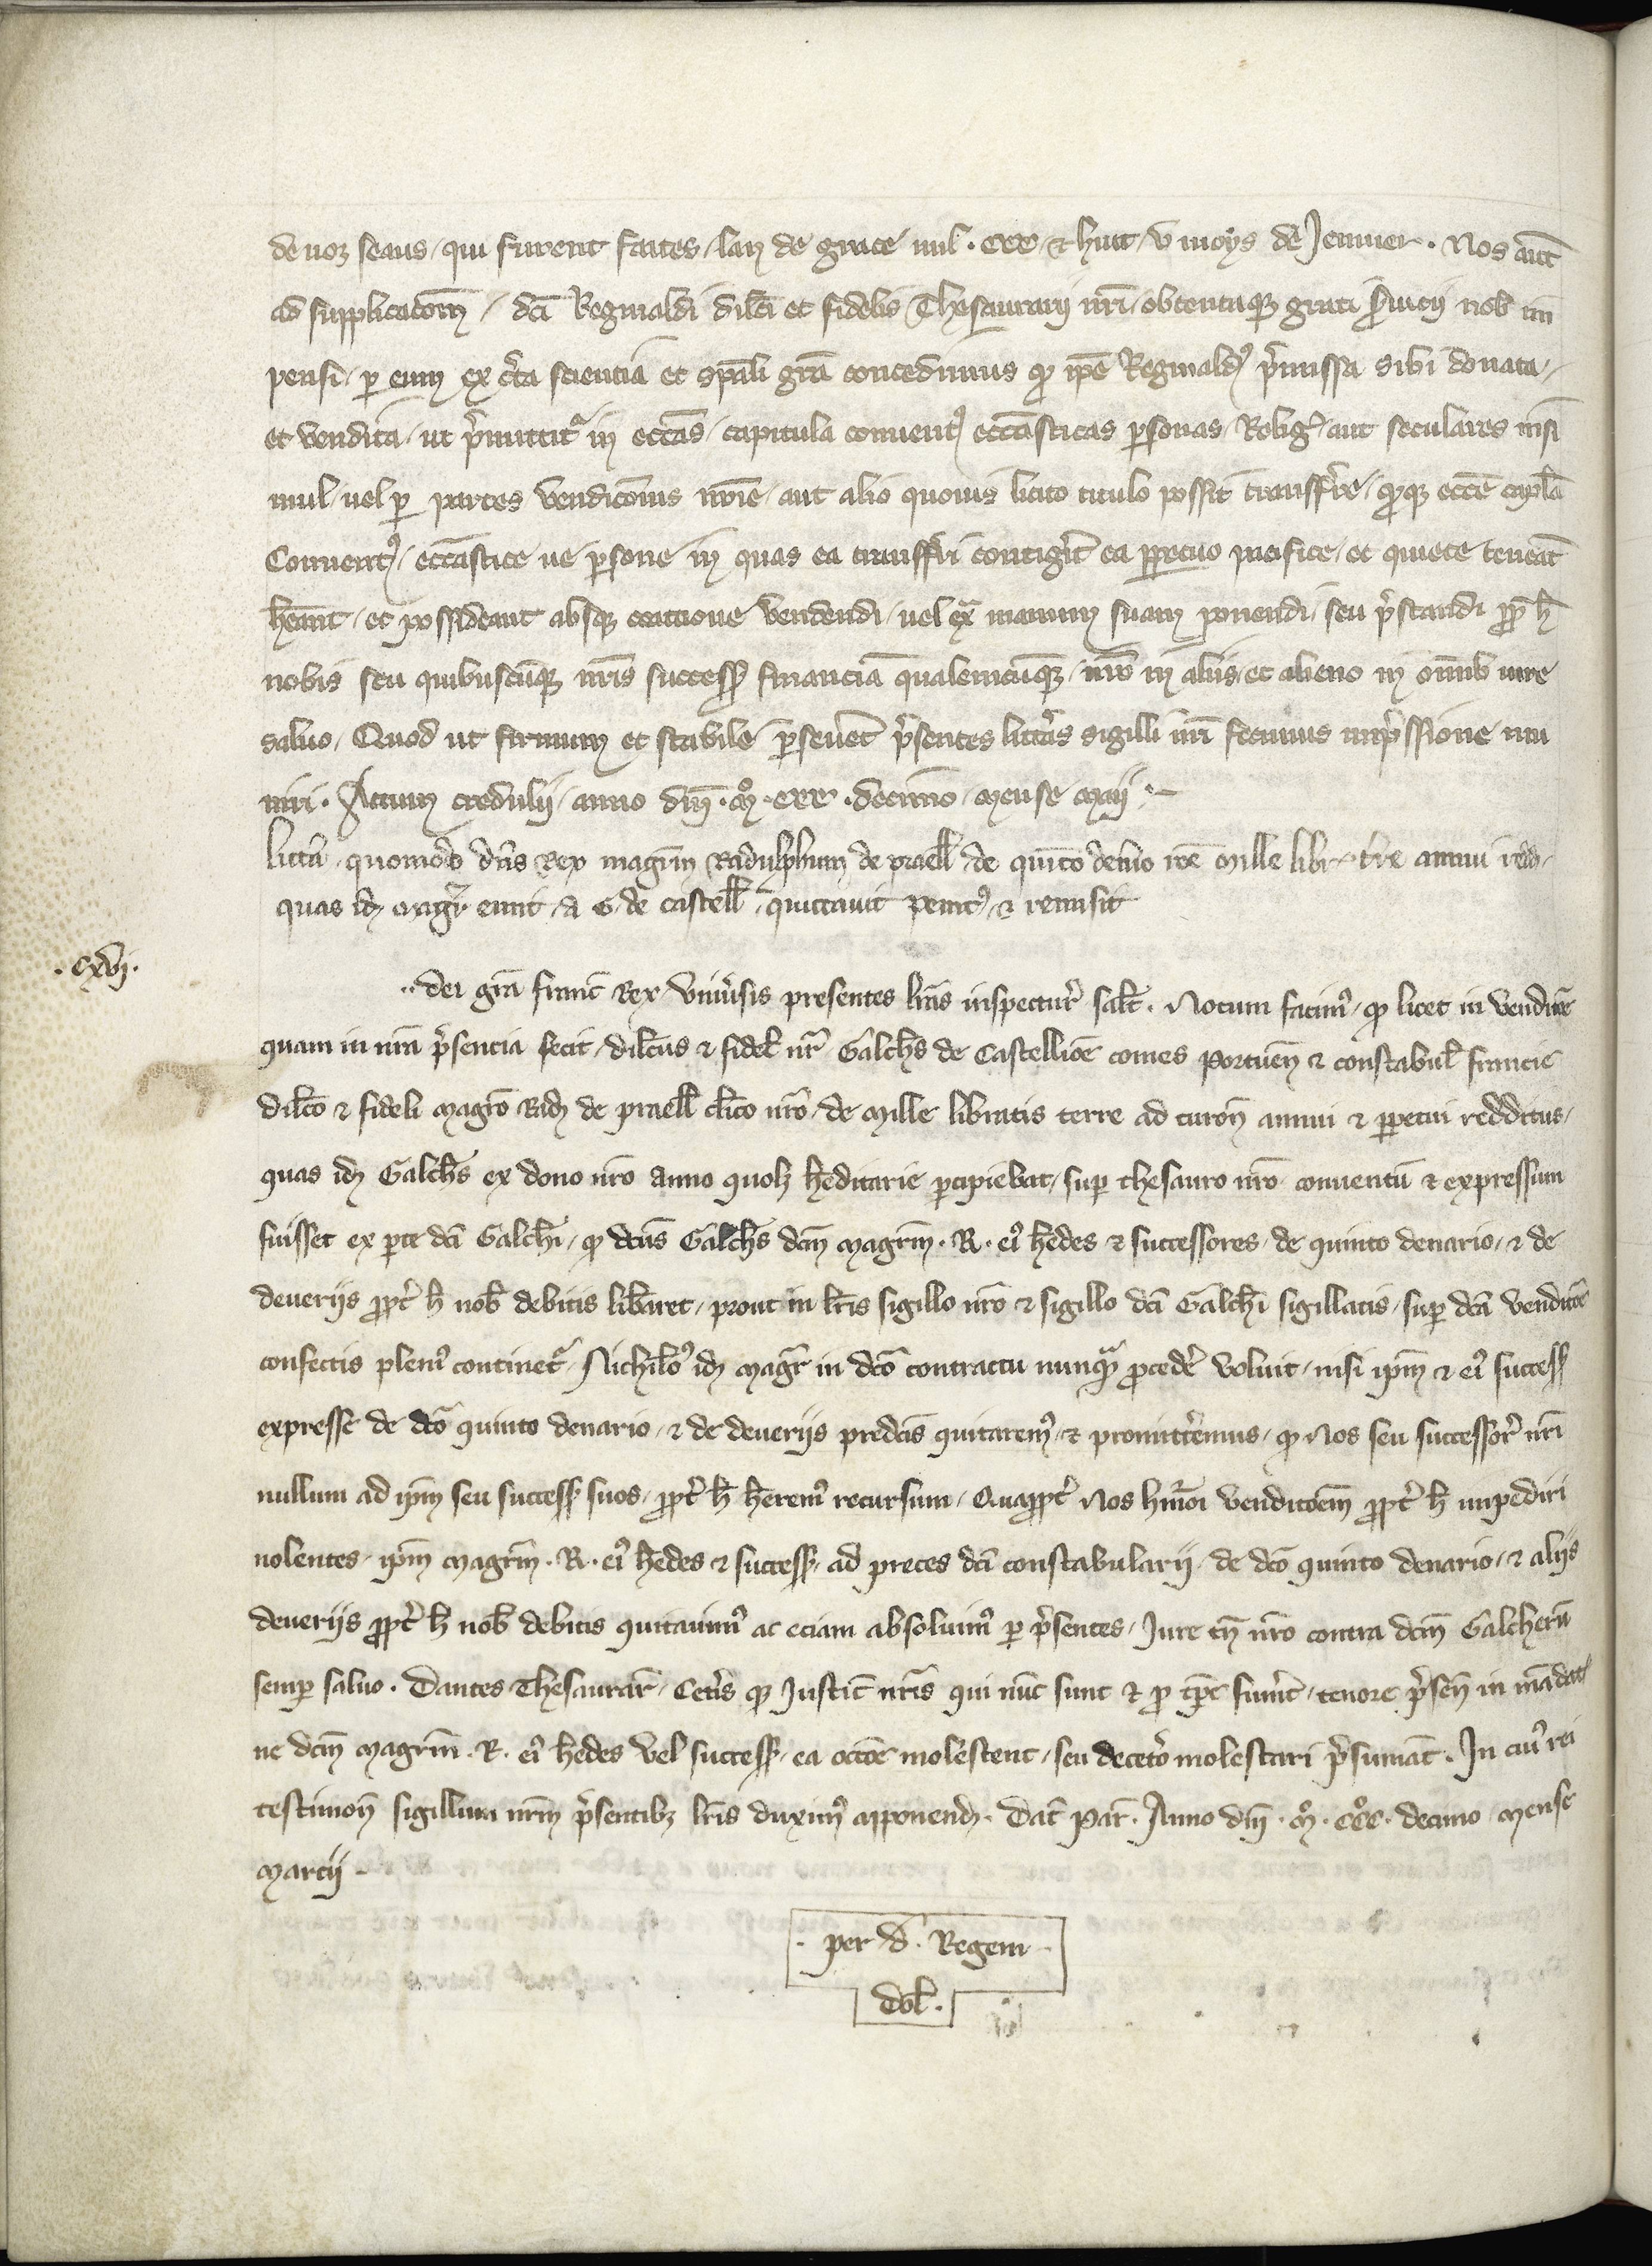 de noz seaus / qui furent faites / lan de grace mil . ccc / & huit / v moys de Jenuier . Nos aut̄
ad supplicacōm̄ / dc̄i Reginaldi dil̄ci et fidelis Thesaurarij nr̄i / obtentuqꝫ grati s̓uicij nob̄ im
pensi / ꝑ eum ex c̓ta sciencia et sp̄ali grā concedimus ꝙ ip̄e Reginaldꝰ p̓missa sibi donata /
et vendita / ut p̓mittitᷣ in ecc̄as / capitula conuentꝰ ecc̄asticas ꝑsonas / Religꝰ / aut seculares insi
mul / uel ꝑ partes vendicōnis noīe / aut alio quouis licito titulo possit transfr̓re / ꝙqꝫ ecc̄e capl̄a
Conuentꝰ / ecc̄astice ue ꝑsone in quas ea transfr̓ri contig̓it ea ꝑpetuo pacifice / et quiete teneāt
heānt / et possideant absqꝫ coactione vendendi / uel exᷓ manum suam ponendi / seu p̓standi ꝓp̄ h̄
nobis seu quibuscūqꝫ nr̄is success̄ financiā qualemcūqꝫ / nr̄o in aliis / et alieno in om̄ib iure
saluo / Quod ut firmum et stabile ꝑseuet̄ p̓sentes litt̓as sigilli nr̄i fecimus imp̓ssione mu
niri . Actum credulij / anno dn̄i . mº . ccc . decimo / mense maij .
litt̄a / quomodo dn̄s Rex magr̄m Radulphum de praell̄ / de quinto denar̄io rōe mille libr̄ . t̓re annui redd̄ /
quas idꝫ mag̓r emit / a G . de castell̄ / quittauit penitꝰ / & remisit
. cxvj .
.. dei grā franc̄ Rex vniu̓sis presentes lr̄as inspectur̄ salt̄ . Notum facimꝰ / ꝙ licet in vendic̄oe
quam in nr̄a p̓sencia fecit / dil̄cus & fidel̄ nr̄ Galch̄s de Castellioē comes Portuen̄ & constabul̄ francie
dil̄co & fideli magr̄o Radꝫ de praell̄ cl̄ico nr̄o / de mille libratis terre ad turon̄ annui & ꝑpetui redditus /
quas idꝫ Galch̄s ex dono nr̄o anno quolꝫ h̄editarie ꝑcipiebat / suꝑ thesauro nr̄o conuentū & expressum
fuisset ex ꝑte dc̄i Galch̄i / ꝙ dc̄us Galch̄s dc̄m magr̄m . R . eiꝰ h̄edes & successores / de quinto denario / & de
deuerijs ꝓpt̓ h̄ nob̄ debitis lib̓aret / prout in lr̄is sigillo nr̄o & sigillo dc̄i Galch̄i sigillatis / suꝑ dc̄a vendic̄oe
confectis pleniꝰ continetᷣ / Nichil̄oꝰ idꝫ magr̄ in dc̄o contractu nunqᷓ ꝓced̓e voluit / nisi ip̄m & eiꝰ success̄
expresse de dc̄o quinto denario / & de deuerijs predc̄is quitaremꝰ & promitt̓emus / ꝙ Nos seu successor̄ nr̄i
nullum ad ip̄m seu success̄ suos / ꝓpt̓ h̄ h̄eremꝰ recursum / Quaꝓpt̓ Nos hmōi vendicōem ꝓpt̓ h̄ impediri
nolentes / ip̄m magr̄m . R . eiꝰ h̄edes & success̄ / ad preces dc̄i constabularij / de dc̄o quinto denario / & alijs
deuerijs ꝓpt̓ h̄ nob̄ debitis quitauimꝰ ac eciam absoluimꝰ ꝑ p̓sentes / Jure tn̄ nr̄o contra dc̄m Galcherū
semꝑ saluo . Dantes Thesaurar̄ / Cet̓is qꝫ Justic̄ nr̄is qui nūc sunt & ꝓ tp̄e fuer̄it / tenore p̓sen̄ in mādat̄
ne dc̄m magr̄m . R . eiꝰ h̄edes vel success̄ / ea occ̄oe molestent / seu decet̓o molestari p̓sumāt . In cuiꝰ rei
testimon̄ sigillum nr̄m p̓sentibꝫ lr̄is duximꝰ apponendꝫ . Dat̄ Par̄ . Anno dn̄i . mº . cccº . decimo mense
marcij
. per d̄ . Regem .
dol̄ .